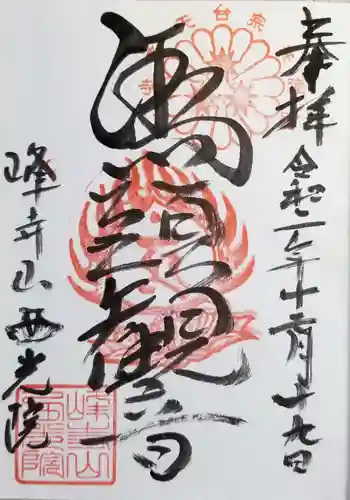 奉拝 令和二年十二月十九日
馬頭観音
峰寺山西光院
天台宗
峰寺山
西光院